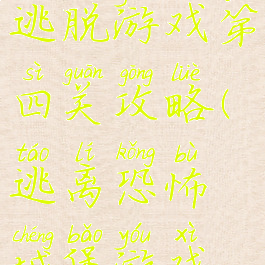 逃脱游戏第
sì guān gōng lüè
四关攻略(
táo lí kǒng bù
逃离恐怖
chéng bǎo yóu xì
城堡游戏